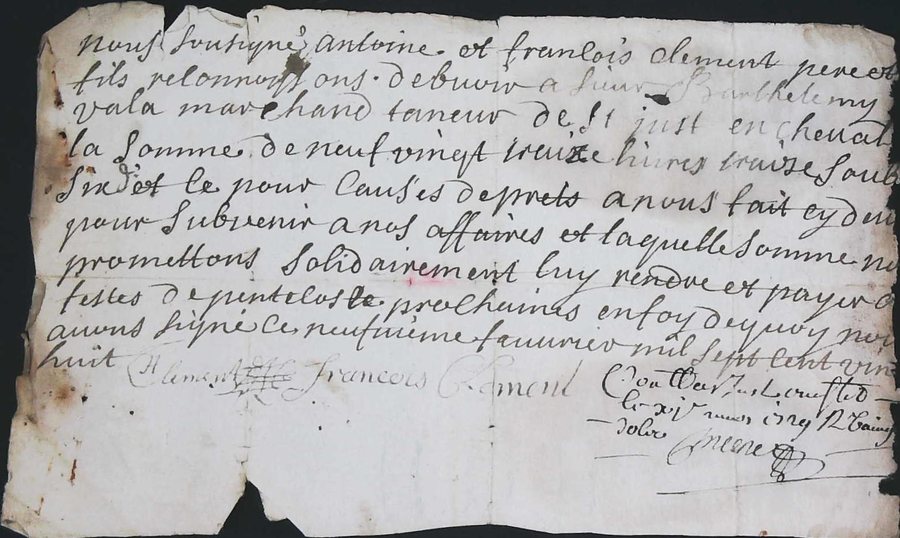 nous soutigné antoine et francois clement pere et
fils reconnoyssons debuoir a sieur Barthelemy
vala marchand taneur de st just en chevalet
la somme de neuf vingt traize liures traize soub
six d et ce pour causes deprets a nous fait cy deu
pour subvenir a nos affaires et laquelle somme no
promettons solidairement luy rendre et payer a
festes de pentecoste prochaines en foy dequoy nou
auons signé ce neufuième feuurier mil sept cent vin
huit
Clement francois Clement